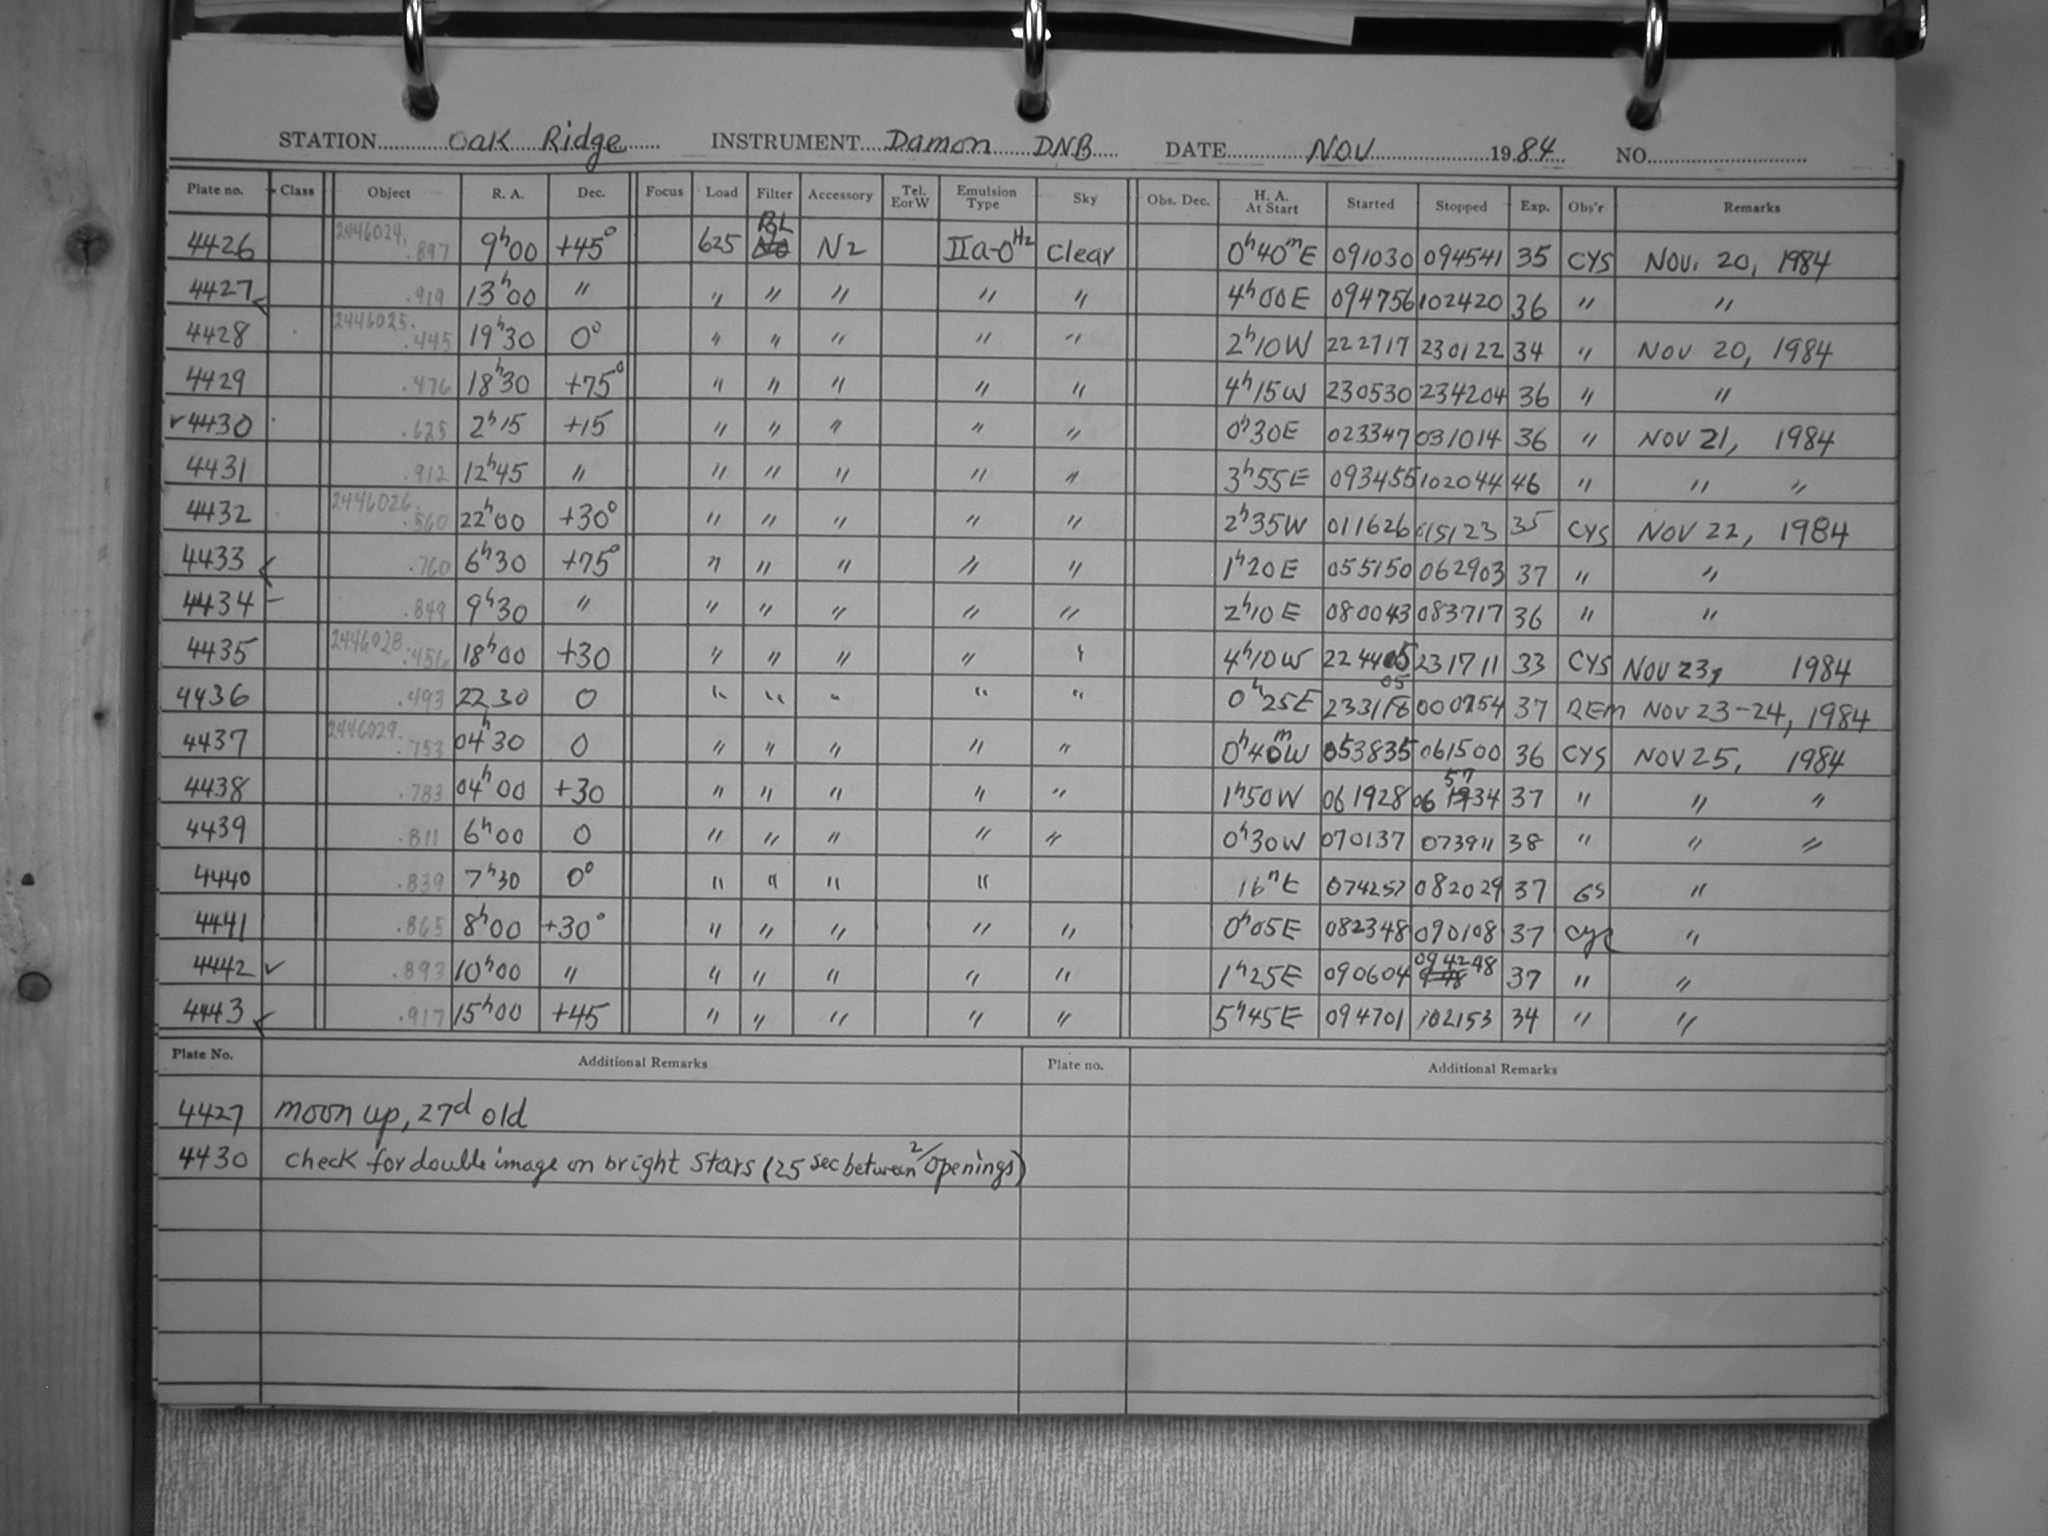 STATION Oak Ridge INSTRUMENT Damon DNB DATE NOV 1984 NO.
Plate no. Class Object R. A. Dec. Focus Load Filter Accessory Tel. E or W Emulsion Type Sky Obs. Dec. H. A. At Start Started Stopped Exp. Obs'r Remarks
4426 2446024. .897 9h00 +45° 625 BL N2 IIa-O H2 Clear 0h40mE 091030 094541 35 CYS Nov. 20, 1984
4427 .919 13h00 " " " " " " 4h00E 094756 102420 36 " "
4428 2446025. .445 19h30 0° " " " " " 2h10W 222717 230122 34 " NOV 20, 1984
4429 .476 18h30 +75° " " " " " 4h15W 230530 234204 36 " "
✓4430 .625 2h15 +15 " " " " " 0h30E 023347 031014 36 " NOV 21, 1984
4431 .912 12h45 " " " " " " 3h55E 093455 102044 46 " " "
4432 2446026. .560 22h00 +30° " " " " " 2h35W 011626 015123 35 CYS NOV 22, 1984
4433 .760 6h30 +75° " " " " " 1h20E 055150 062903 37 " "
4434 – .849 9h30 " " " " " " 2h10E 080043 083717 36 " "
4435 2446028. .451 18h00 +30 " " " " " 4h10W 224405 231711 33 CYS NOV 23, 1984
4436 .493 22 30 0 " " " " " 0h25E 2331 05 000754 37 REM NOV 23-24, 1984
4437 2446029. .753 04h30 0 " " " " " 0h40mW 053835 061500 36 CYS NOV 25, 1984
4438 .783 04h00 +30 " " " " " 1h50W 061928 06 57 34 37 " " "
4439 .811 6h00 0 " " " " " 0h30W 070137 073911 38 " " "
4440 .839 7h30 0° " " " " 16mE 074257 082029 37 GS "
4441 .865 8h00 +30° " " " " " 0h05E 082348 090108 37 CYS "
4442 ✓ .893 10h00 " " " " " " 1h25E 090604 094248 37 " "
4443 .917 15h00 +45 " " " " " 5h45E 094701 102153 34 " "
Plate No. Additional Remarks Plate no. Additional Remarks
4427 moon up, 27d old
4430 check for double image on bright stars (25 sec between 2/openings)